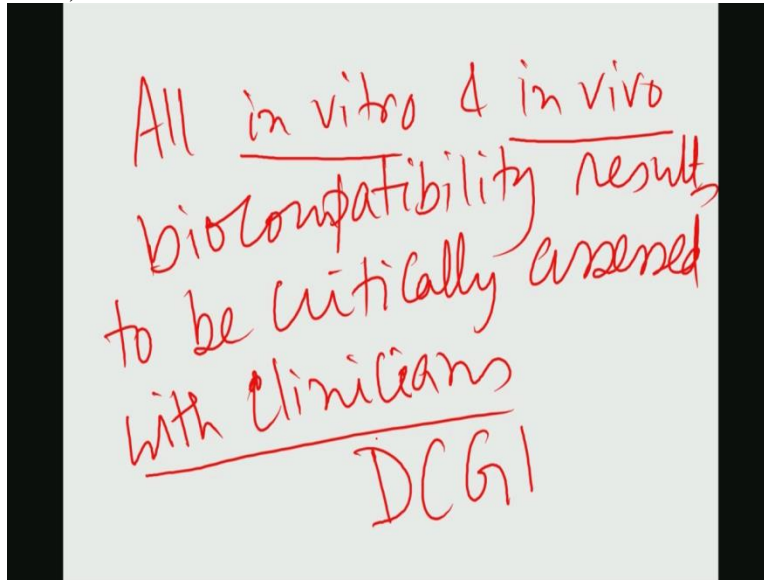 All in vitro & in vivo
biocompatibility results
to be critically assessed
with clinicians
DCGI